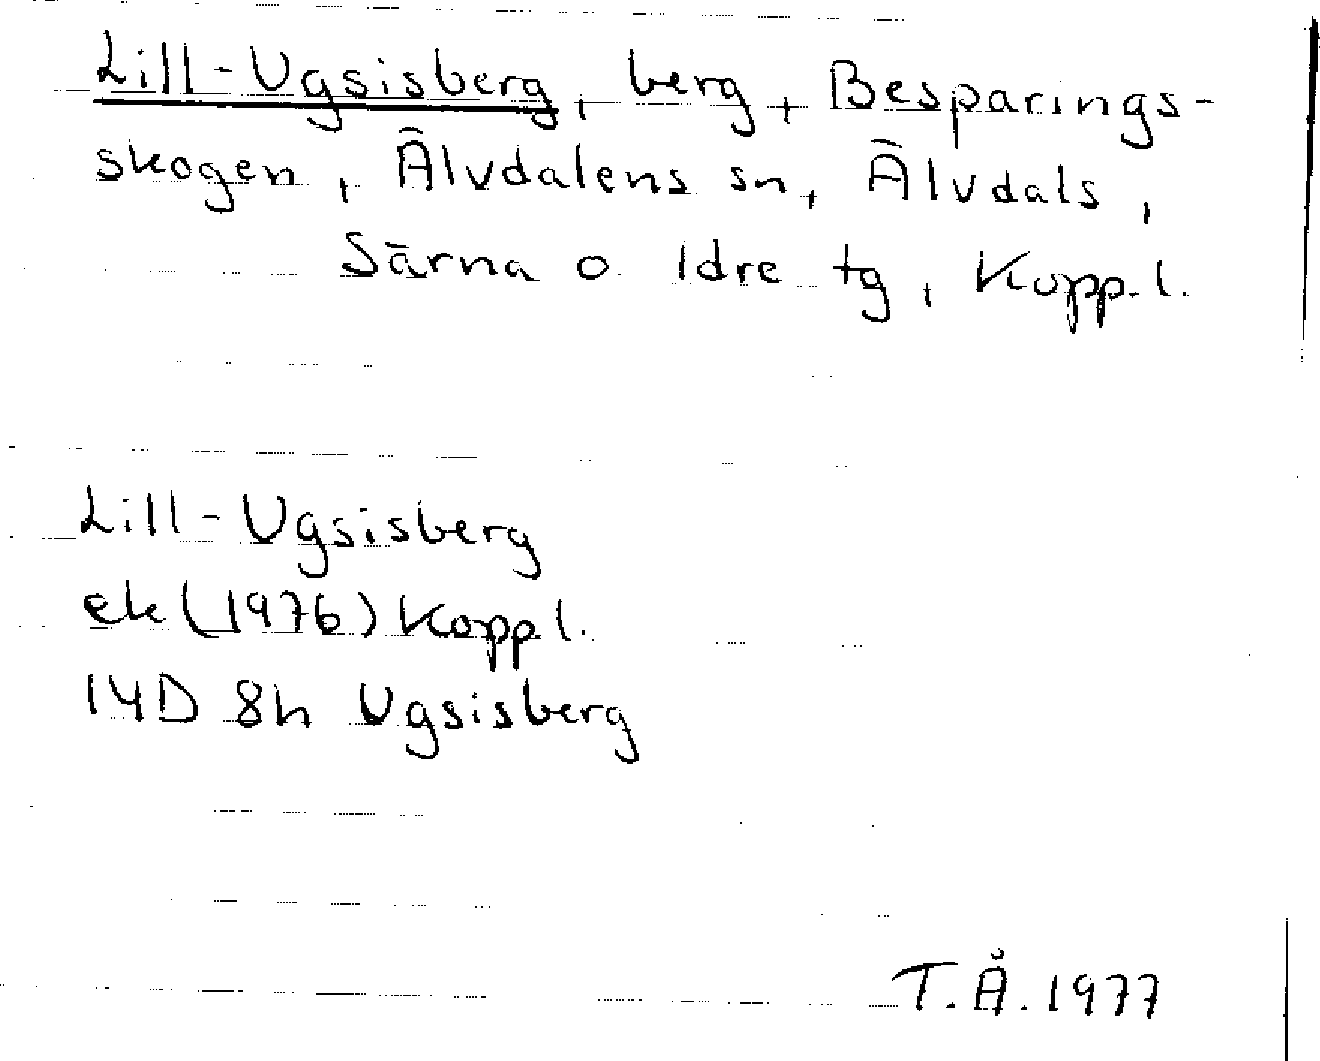 Lill-Ugsisberg, berg, Besparings-
skogen, Älvdalens sn, Älvdals,
Särna o. Idre tg, Kopp. l.
Lill-Ugsisberg
ek (1976) Kopp l.
14D 8h Ugsisberg
T.Å. 1977